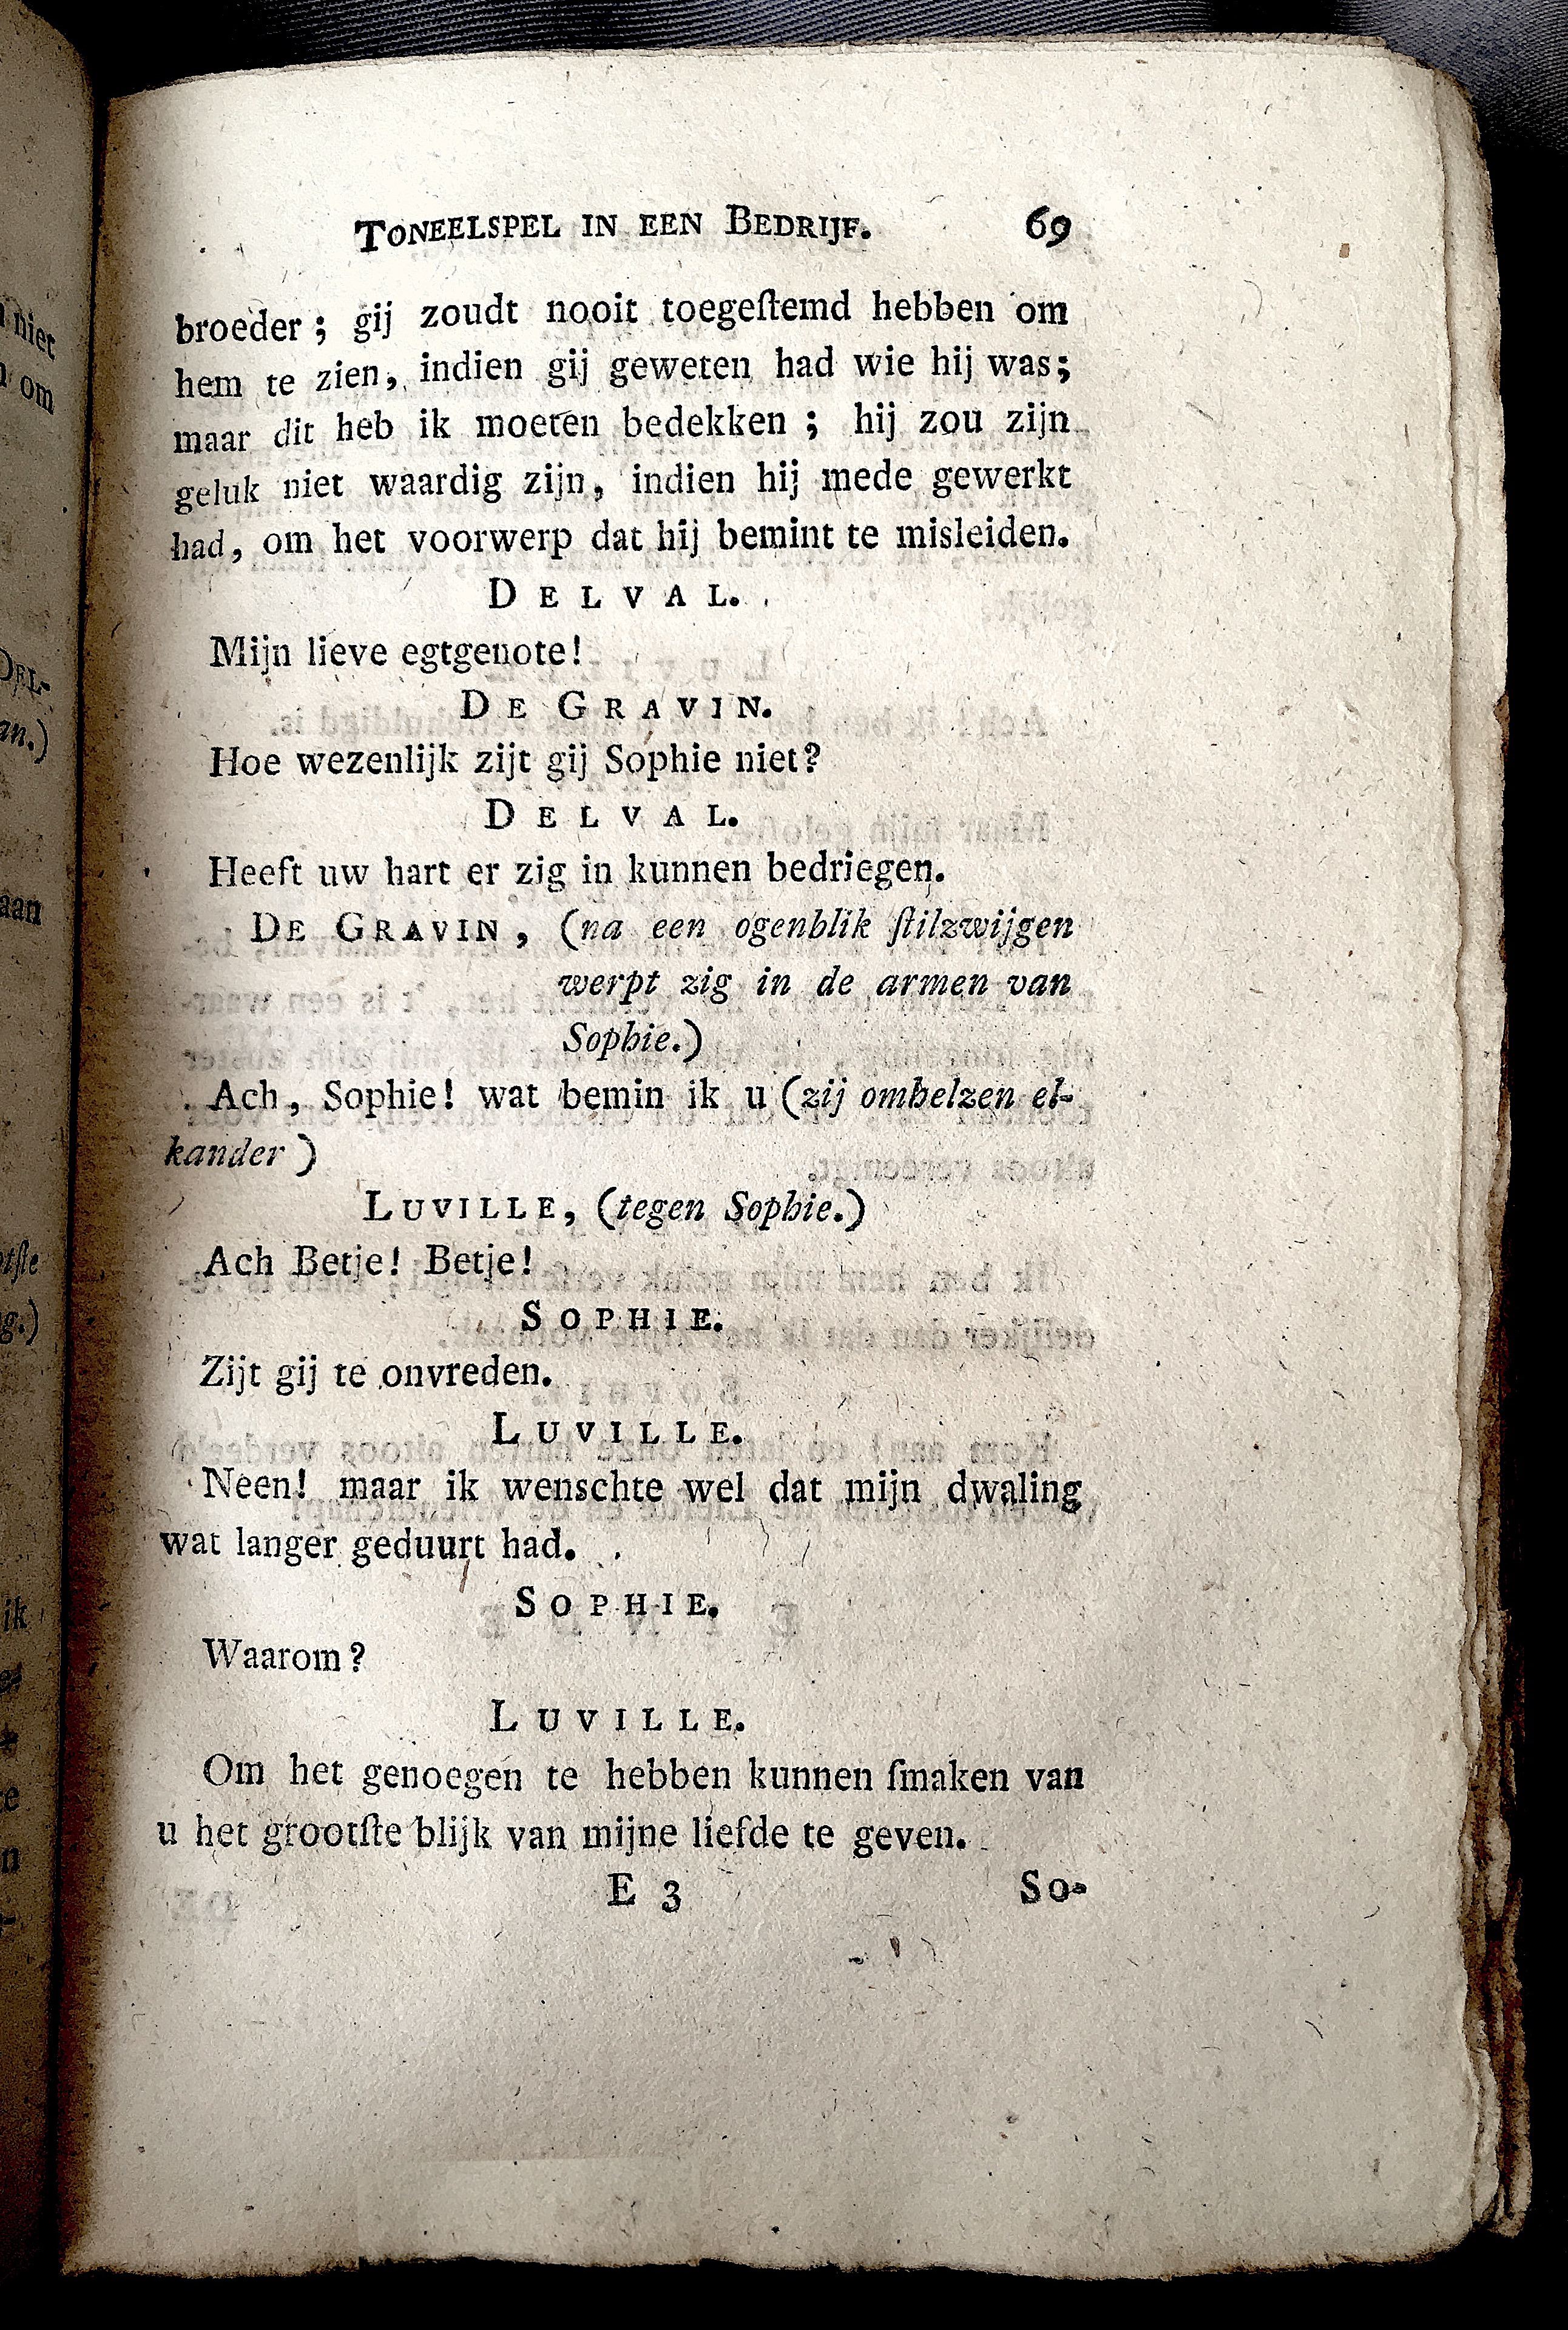 Toneelspel in een Bedrijf. 69
broeder; gij zoudt nooit toegeſtemd hebben om
hem te zien, indien gij geweten had wie hij was;
maar dit heb ik moeten bedekken; hij zou zijn
geluk niet waardig zijn, indien hij mede gewerkt
had, om het voorwerp dat hij bemint te misleiden.
Delval.
Mijn lieve egtgenote!
De Gravin.
Hoe wezenlijk zijt gij Sophie niet?
Delval.
Heeft uw hart er zig in kunnen bedriegen.
De Gravin, (na een ogenblik ſtilzwijgen
werpt zig in de armen van
Sophie.)
Ach, Sophie! wat bemin ik u (zij omhelzen el-
kander)
Luville, (tegen Sophie.)
Ach Betje! Betje!
Sophie.
Zijt gij te onvreden.
Luville.
Neen! maar ik wenschte wel dat mijn dwaling
wat langer geduurt had.
Sophie.
Waarom?
Luville.
Om het genoegen te hebben kunnen ſmaken van
u het grootſte blijk van mijne liefde te geven.
E 3 So-